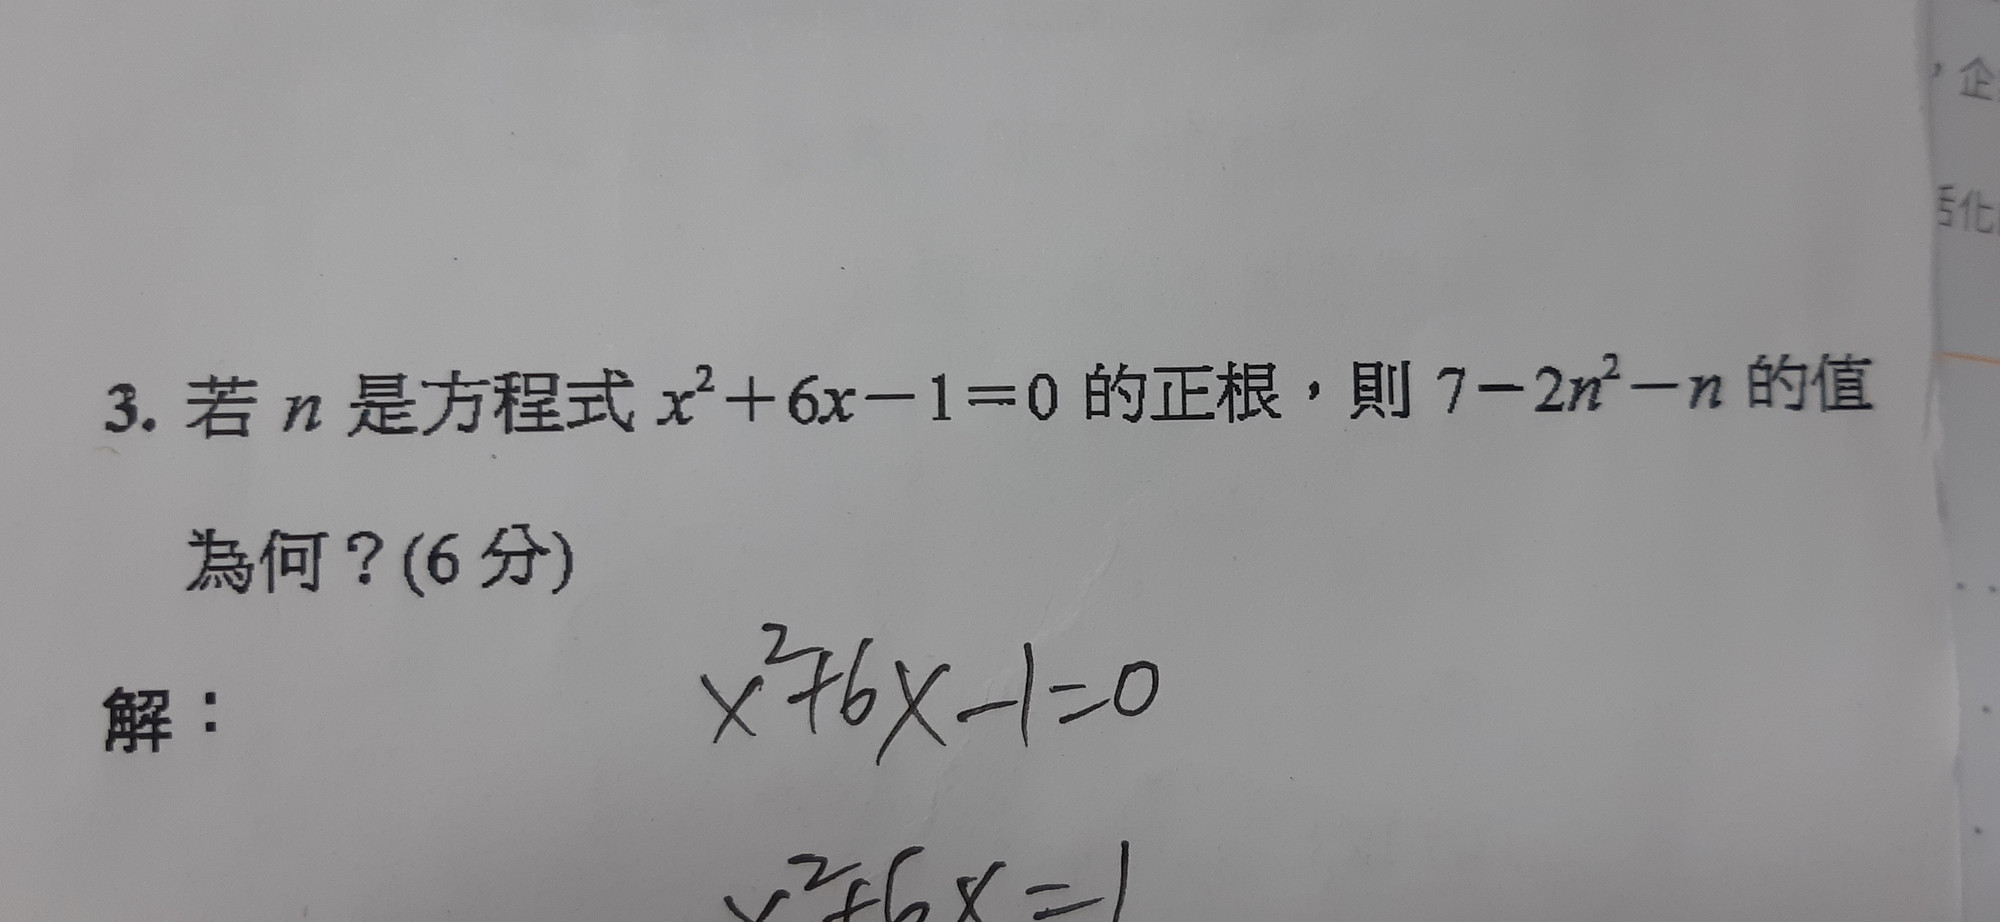 ，企
活化
3. 若 n 是方程式 x²+6x−1=0 的正根，則 7−2n²−n 的值
為何？(6 分)
解：
x²+6x−1=0
x²+6x=1